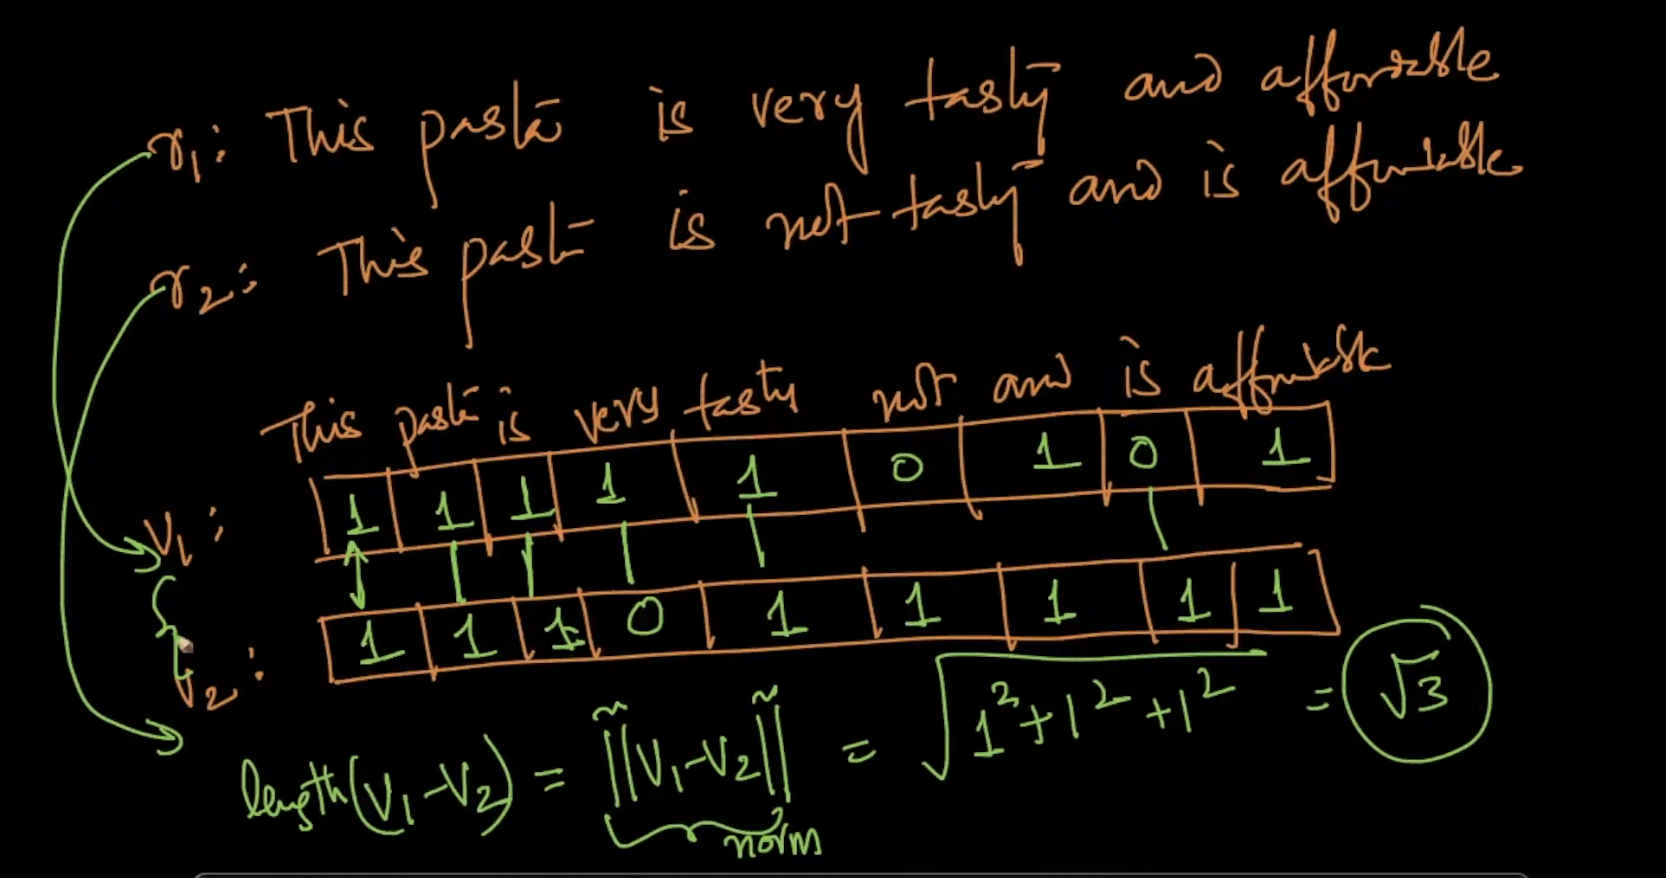 r1: This pasta is very tasty and affordable
r2: This pasta is not tasty and is affordable
This pasta is very tasty not and is affordable
V1: 1 1 1 1 1 0 1 0 1
V2: 1 1 1 0 1 1 1 1 1
length(V1-V2) = ||V1-V2|| = √(1²+1²+1²) = √3
norm